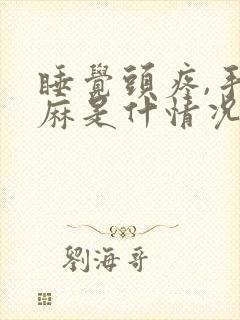 睡覺頭疼,手
麻是什情況
劉海哥